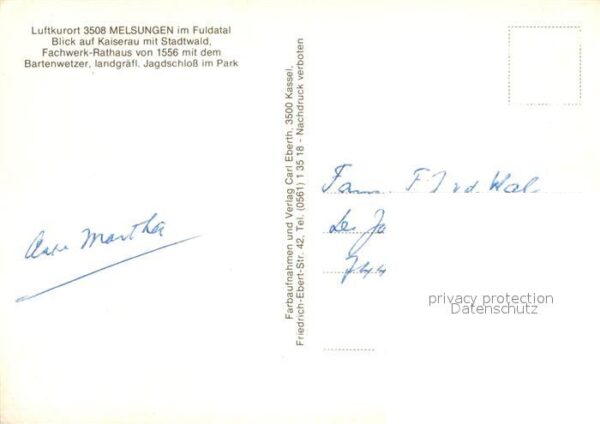 Luftkurort 3508 MELSUNGEN im Fuldatal
Blick auf Kaiserau mit Stadtwald,
Fachwerk-Rathaus von 1556 mit dem
Bartenwetzer, landgräfl. Jagdschloß im Park
Martha
Farbaufnahmen und Verlag Carl Eberth, 3500 Kassel,
Friedrich-Ebert-Str. 42, Tel. (0561) 1 35 18 - Nachdruck verboten
Fam.
privacy protection
Datenschutz